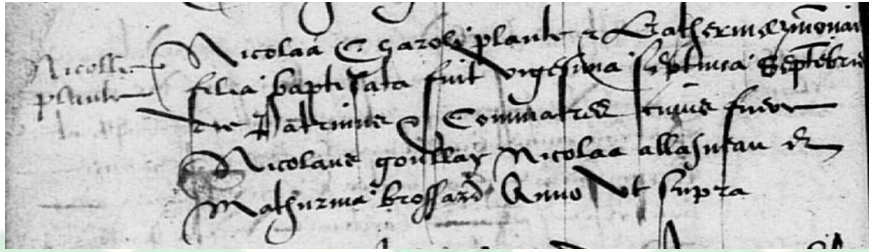 Nicolle plante
Nicolaa Caroli plante & Katherine
filia baptisata fuit vigesima septima septebris
die Patrinus & Commatres fuer
Nicolaus goullay Nicolaa allaneau &
Mathurina brossard Anno Vt supra